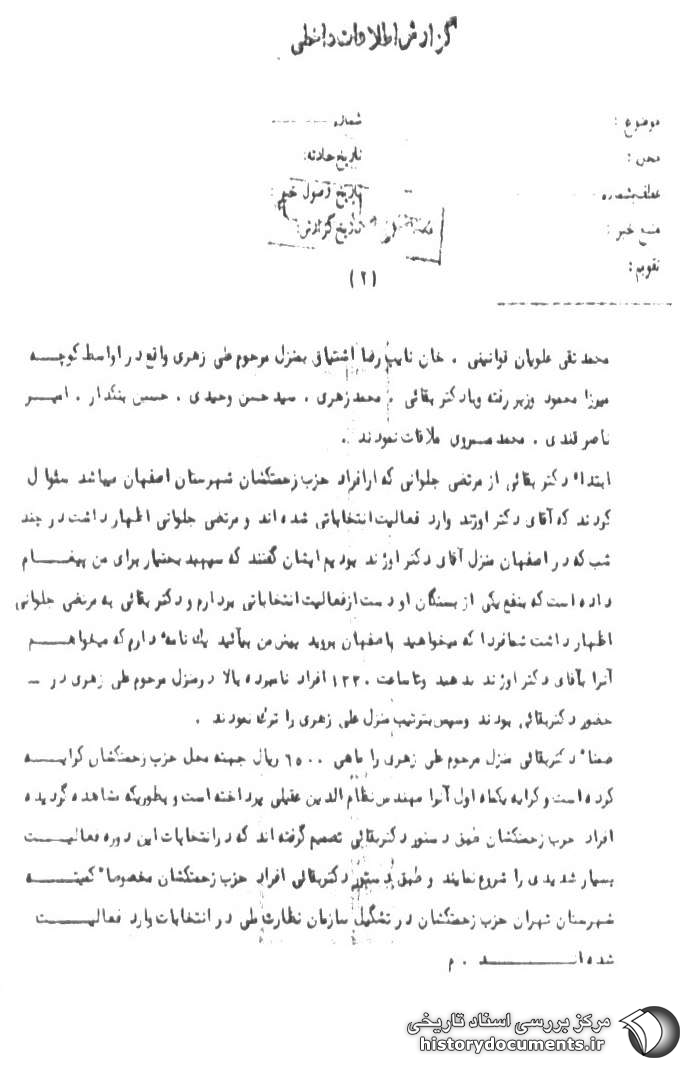 گزارش اطلاعات داخلی
موضوع :
شماره
محل :
تاریخ حادثه:
عطف بشماره
تاریخ وصول خبر :
منبع خبر :
تاریخ گزارش:
تقویم :
(۲)
محمد تقی علویان قوانینی . خان نایب رضا اشتهائی بمنزل مرحوم علی زهری واقع در اواسط کوچه
میرزا محمود وزیر رفته و با دکتر بقائی . محمد زهری . سید حسن وحیدی . حسین بنکدار . امیر
ناصر قندی . محمد خسروی ملاقات نمودند .
ابتدا" دکتر بقائی از مرتضی جلوانی که از افراد حزب زحمتکشان شهرستان اصفهان میباشد سئوال
کردند که آقای دکتر اورند وارد فعالیت انتخاباتی شده اند و مرتضی جلوانی اظهار داشت در چند
شب که در اصفهان منزل آقای دکتر اورند بودیم ایشان گفتند که سپهبد بختیار برای من پیغام
داده است که بنفع یکی از بستگان او دست از فعالیت انتخاباتی بردارم و دکتر بقائی به مرتضی جلوانی
اظهار داشت شما فردا که میخواهید باصفهان بروید پیش من بیآئید یک نامه دارم که میخواهم
آنرا بآقای دکتر اورند بدهید وتا ساعت ۱۲۳۰ افراد نامبرده بالا در منزل مرحوم علی زهری در –
حضور دکتر بقائی بودند وسپس بترتیب منزل علی زهری را ترک نمودند .
ضمنا" دکتر بقائی منزل مرحوم علی زهری را ماهی ۶۵۰۰ ریال جهته محل حزب زحمتکشان کرایه
کرده است و کرایه یکماه اول آنرا مهندس نظام الدین عقیلی پرداخته است و بطوریکه مشاهده گردیده
افراد حزب زحمتکشان طبق دستور دکتر بقائی تصمیم گرفته اند که در انتخابات این دوره فعالیت
بسیار شدیدی را شروع نمایند و طبق دستور دکتر بقائی افراد حزب زحمتکشان مخصوصا" کمیته
شهرستان تهران حزب زحمتکشان در تشکیل سازمان نظارت ملی در انتخابات وارد فعالیت
شده اند . م
مرکز بررسی اسناد تاریخی
historydocuments.ir